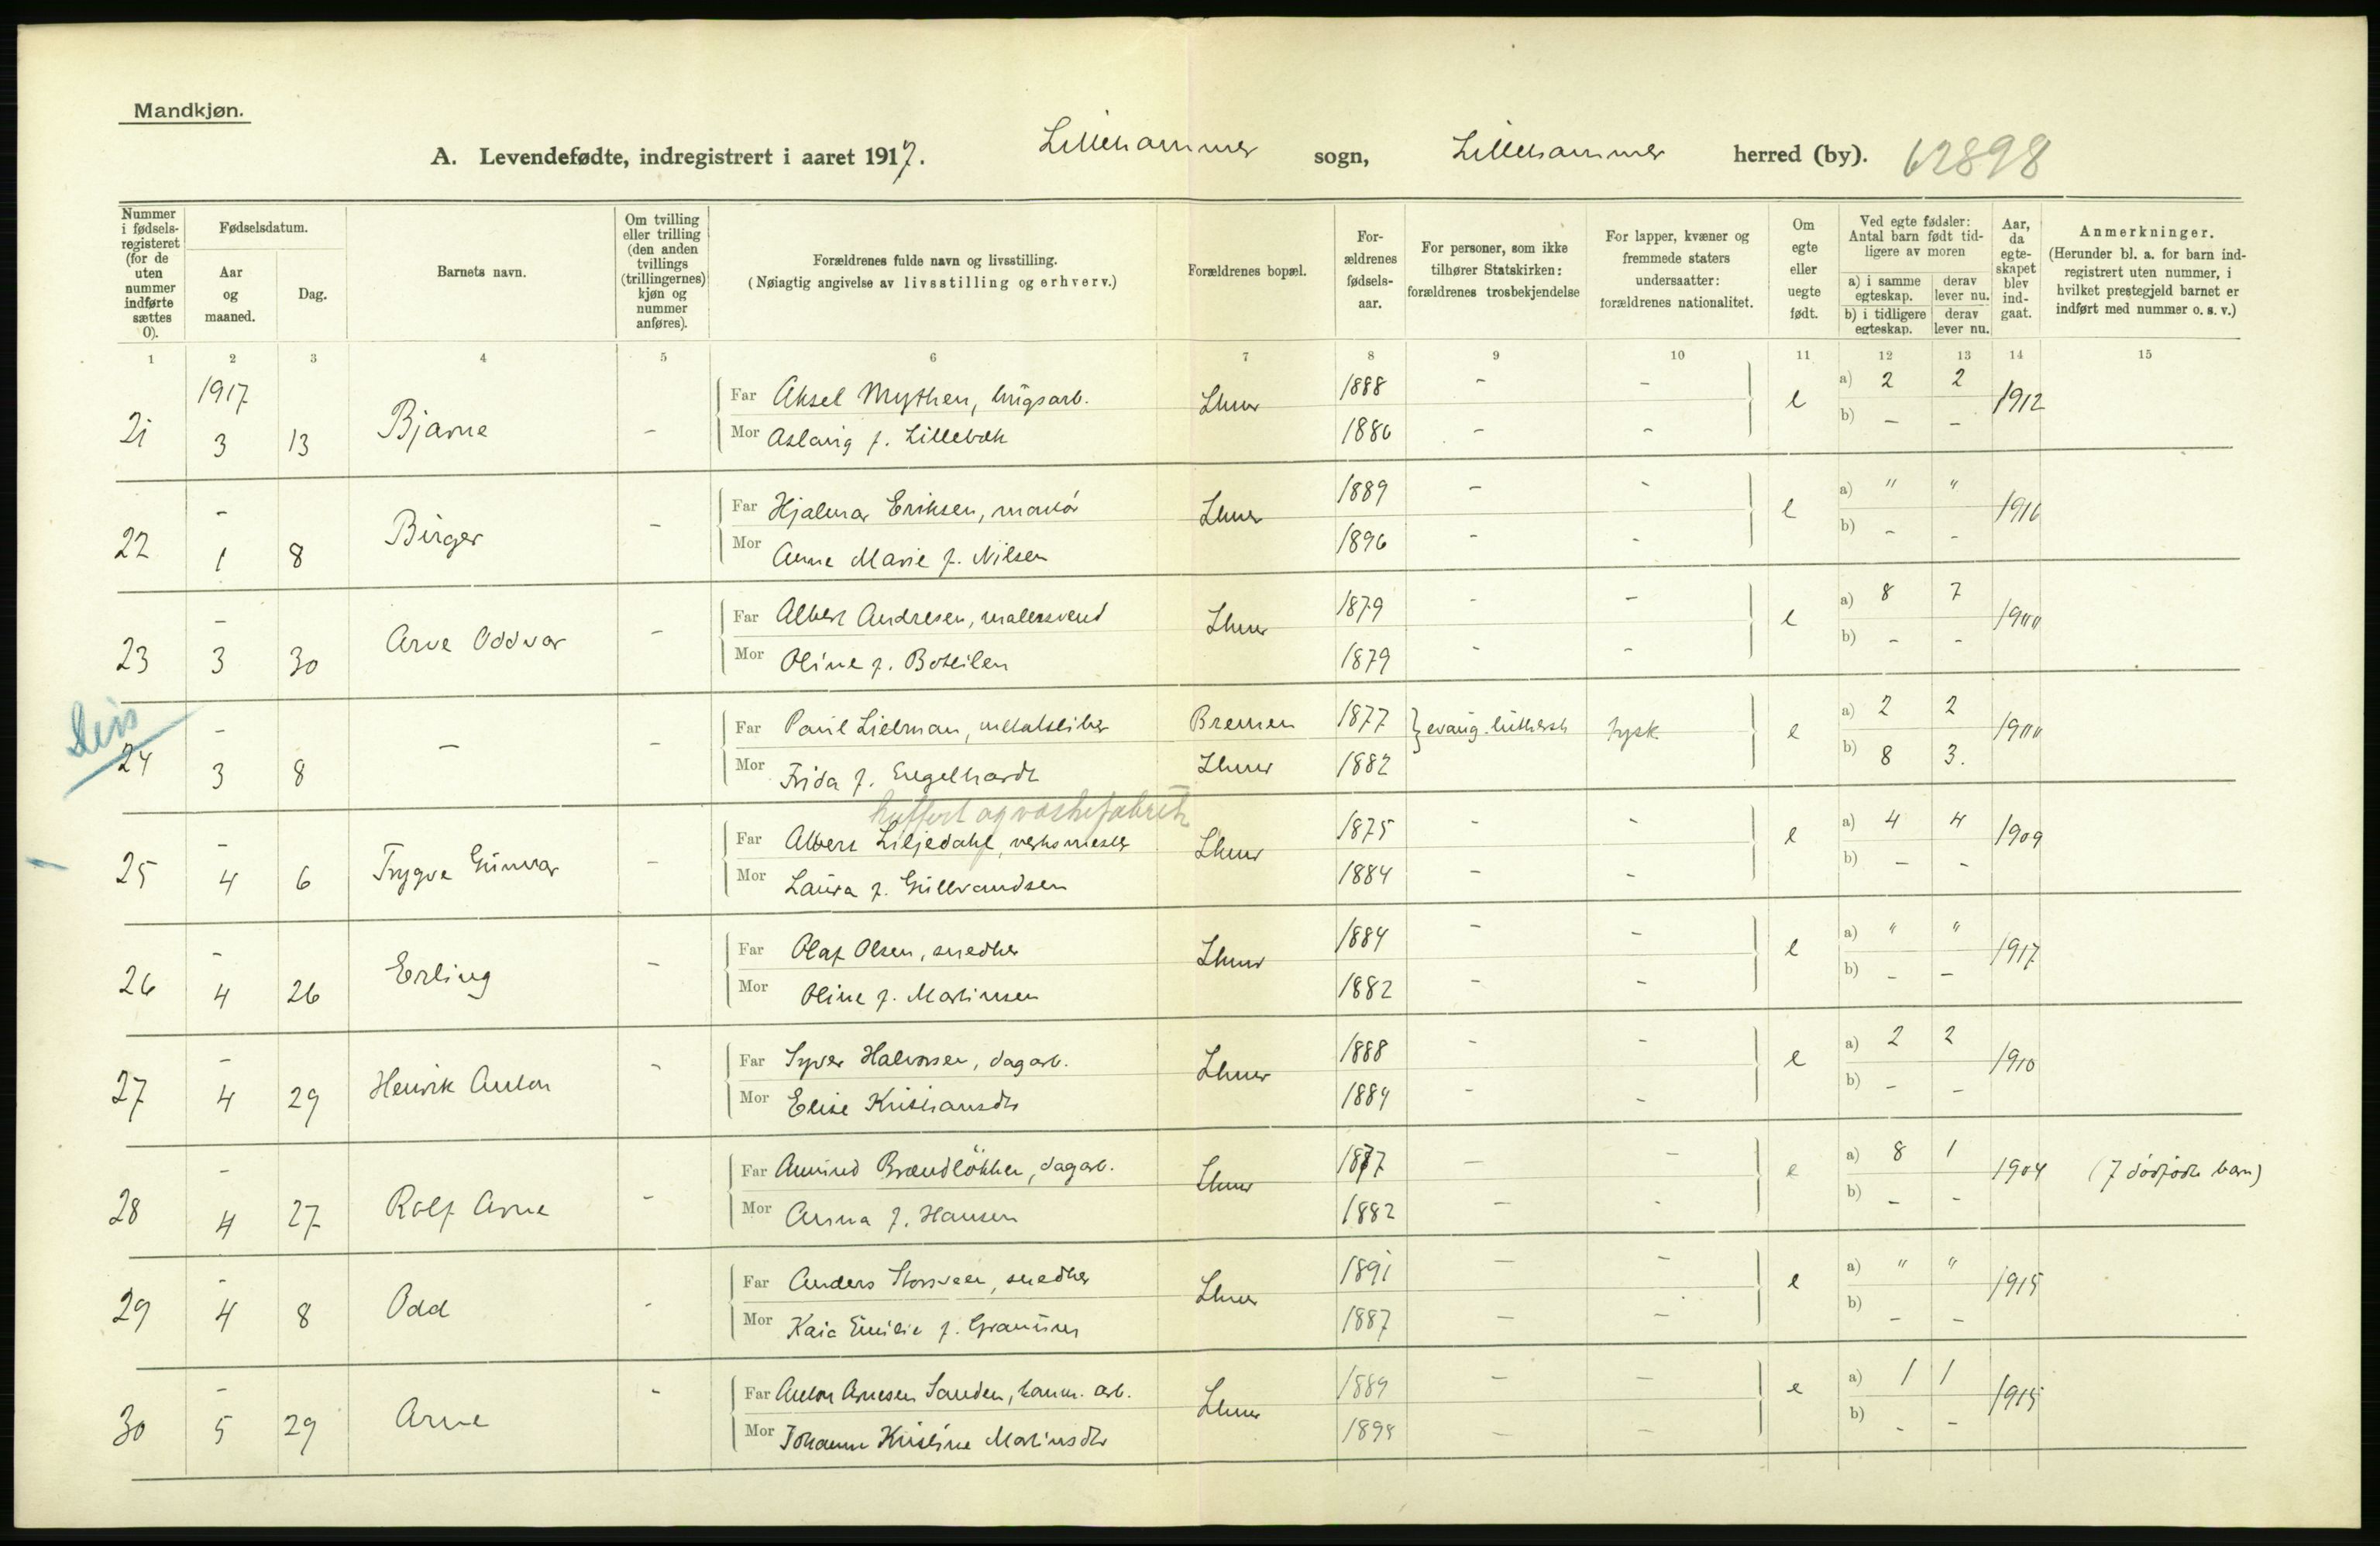 Mandkjøn.
A. Levendefødte, indregistrert i aaret 1917. Lillehammer sogn, Lillehammer herred (by). 62898
Nummer i fødsels-registeret (for de uten nummer indførte sættes 0).
Fødselsdatum.
Aar og maaned.
Dag.
Barnets navn.
Om tvilling eller trilling (den anden tvillings (trillingernes) kjøn og nummer anføres).
Forældrenes fulde navn og livsstilling.
(Nøiagtig angivelse av livsstilling og erhverv.)
Forældrenes bopæl.
For-ældrenes fødsels-aar.
For personer, som ikke tilhører Statskirken: forældrenes trosbekjendelse
For lapper, kvæner og fremmede staters undersaatter: forældrenes nationalitet.
Om egte eller uegte født.
Ved egte fødsler: Antal barn født tid-ligere av moren
a) i samme egteskap. derav lever nu.
b) i tidligere egteskap. derav lever nu.
Aar, da egte-skapet blev ind-gaat.
Anmerkninger.
(Herunder bl. a. for barn ind-registrert uten nummer, i hvilket prestegjeld barnet er indført med nummer o. s. v.)
1 2 3 4 5 6 7 8 9 10 11 12 13 14 15
1917
21 3 13 Bjarne - Far Aksel Mythen, Lhmr 1888 - - e a) 2 2 1912
Mor Aslaug f. Lillebæk 1886 - - b) - -
-
22 1 8 Birger - Far Hjalmar Eriksen, Lhmr 1889 - - e a) " " 1916
Mor Anne Marie f. Nilsen 1896 - - b) - -
-
23 3 30 Arve Oddvar - Far Albert Andresen, malersvend Lhmr 1879 - - e a) 8 7 1900
Mor Oline f. 1879 - - b) - -
-
24 3 8 - - Far Paul Lielman, metalsliber Bremen 1877 } evang. luthersk tysk e a) 2 2
Mor Frida f. Engelhardt Lhmr 1882 b) 8 3.
kuffert og væskefabrik
-
25 4 6 Trygve Gunvar - Far Albert Liljedahl, verksmester Lhmr 1875 - - e a) 4 4 1909
Mor Laura f. Gulbrandsen 1884 - - b) - -
-
26 4 26 Erling - Far Olaf Olsen, snedker Lhmr 1884 - - e a) " " 1917
Mor Oline f. Martinsen 1882 - - b) - -
-
27 4 29 Henrik Anton - Far Syver Halvorsen, dagarb. Lhmr 1888 - - e a) 2 2 1910
Mor Elise Kristiansdtr 1884 - - b) - -
-
28 4 27 Rolf Arne - Far Amund Brændløkken, dagarb. Lhmr 1877 - - e a) 8 1 1904 (7 dødfødte barn)
Mor Anna f. Hansen 1882 - - b) - -
-
29 4 8 Odd - Far Anders Storsveen, snedker Lhmr 1891 - - e a) " " 1915
Mor Kaia Emilie f. 1887 - - b) - -
-
30 5 29 Arne - Far Anton Arnesen Sanden, arb. Lhmr 1889 - - e a) 1 1 1915
Mor Johanne Kristine Martinsdtr - - b) - -